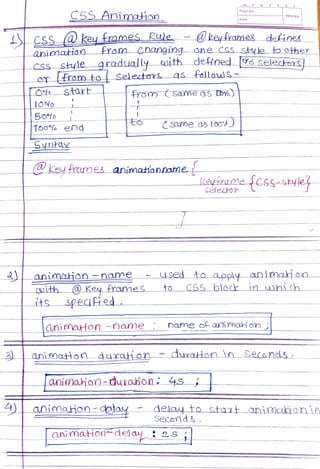 CSS Animation
1) CSS @keyframes Rule - @keyframes defines
animation from changing one CSS style to other
CSS style gradually with defined %selectors
or from to selectors as follows-
0% start
10%
50%
100% end
from (same as 0%)
to (same as 100%)
Syntax
@keyframes animationname {
keyframe selector {CSS-style}
}
2) animation-name - used to apply animation
with @keyframes to CSS block in which
its specified.
animation-name : name of animation ;
3) animation duration - duration in seconds.
animation-duration: 4s ;
4) animation-delay - delay to start animation in
seconds.
animation-delay : 2s ;